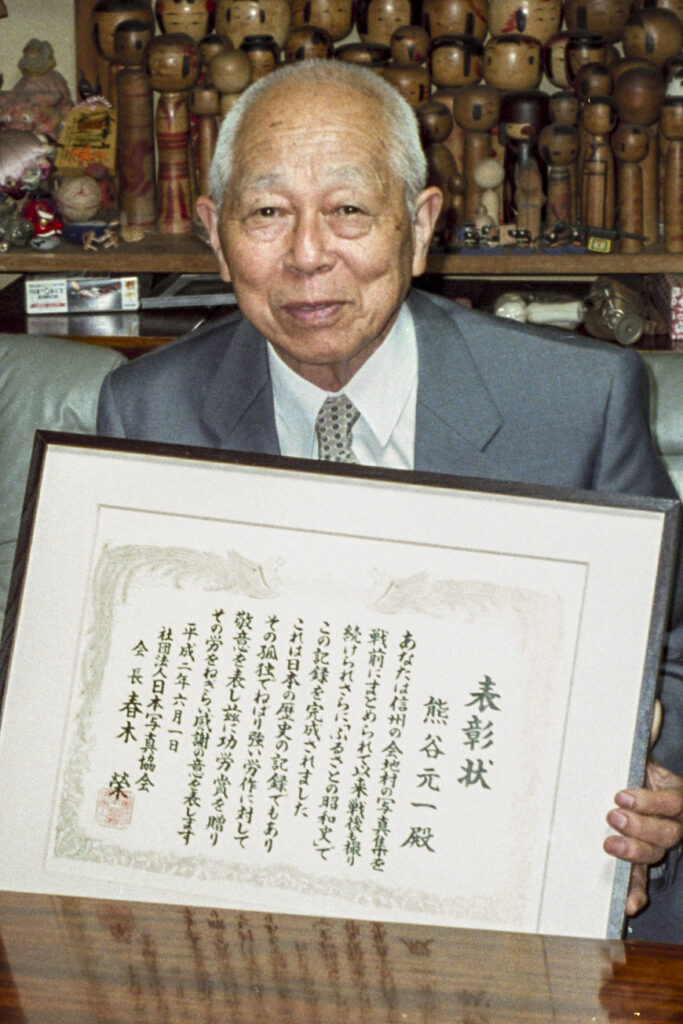 表彰状
熊谷元一殿
あなたは信州の会地村の写真集を
戦前にまとめられて以来戦後も撮り
続けられさらに「ふるさとの昭和史」で
この記録を完成されました
これは日本の歴史の記録でもあり
その孤独でねばり強い労作に対して
敬意を表し茲に功労賞を贈り
その労をねぎらい感謝の意を表します
平成二年六月一日
社団法人日本写真協会
会長 春木 榮